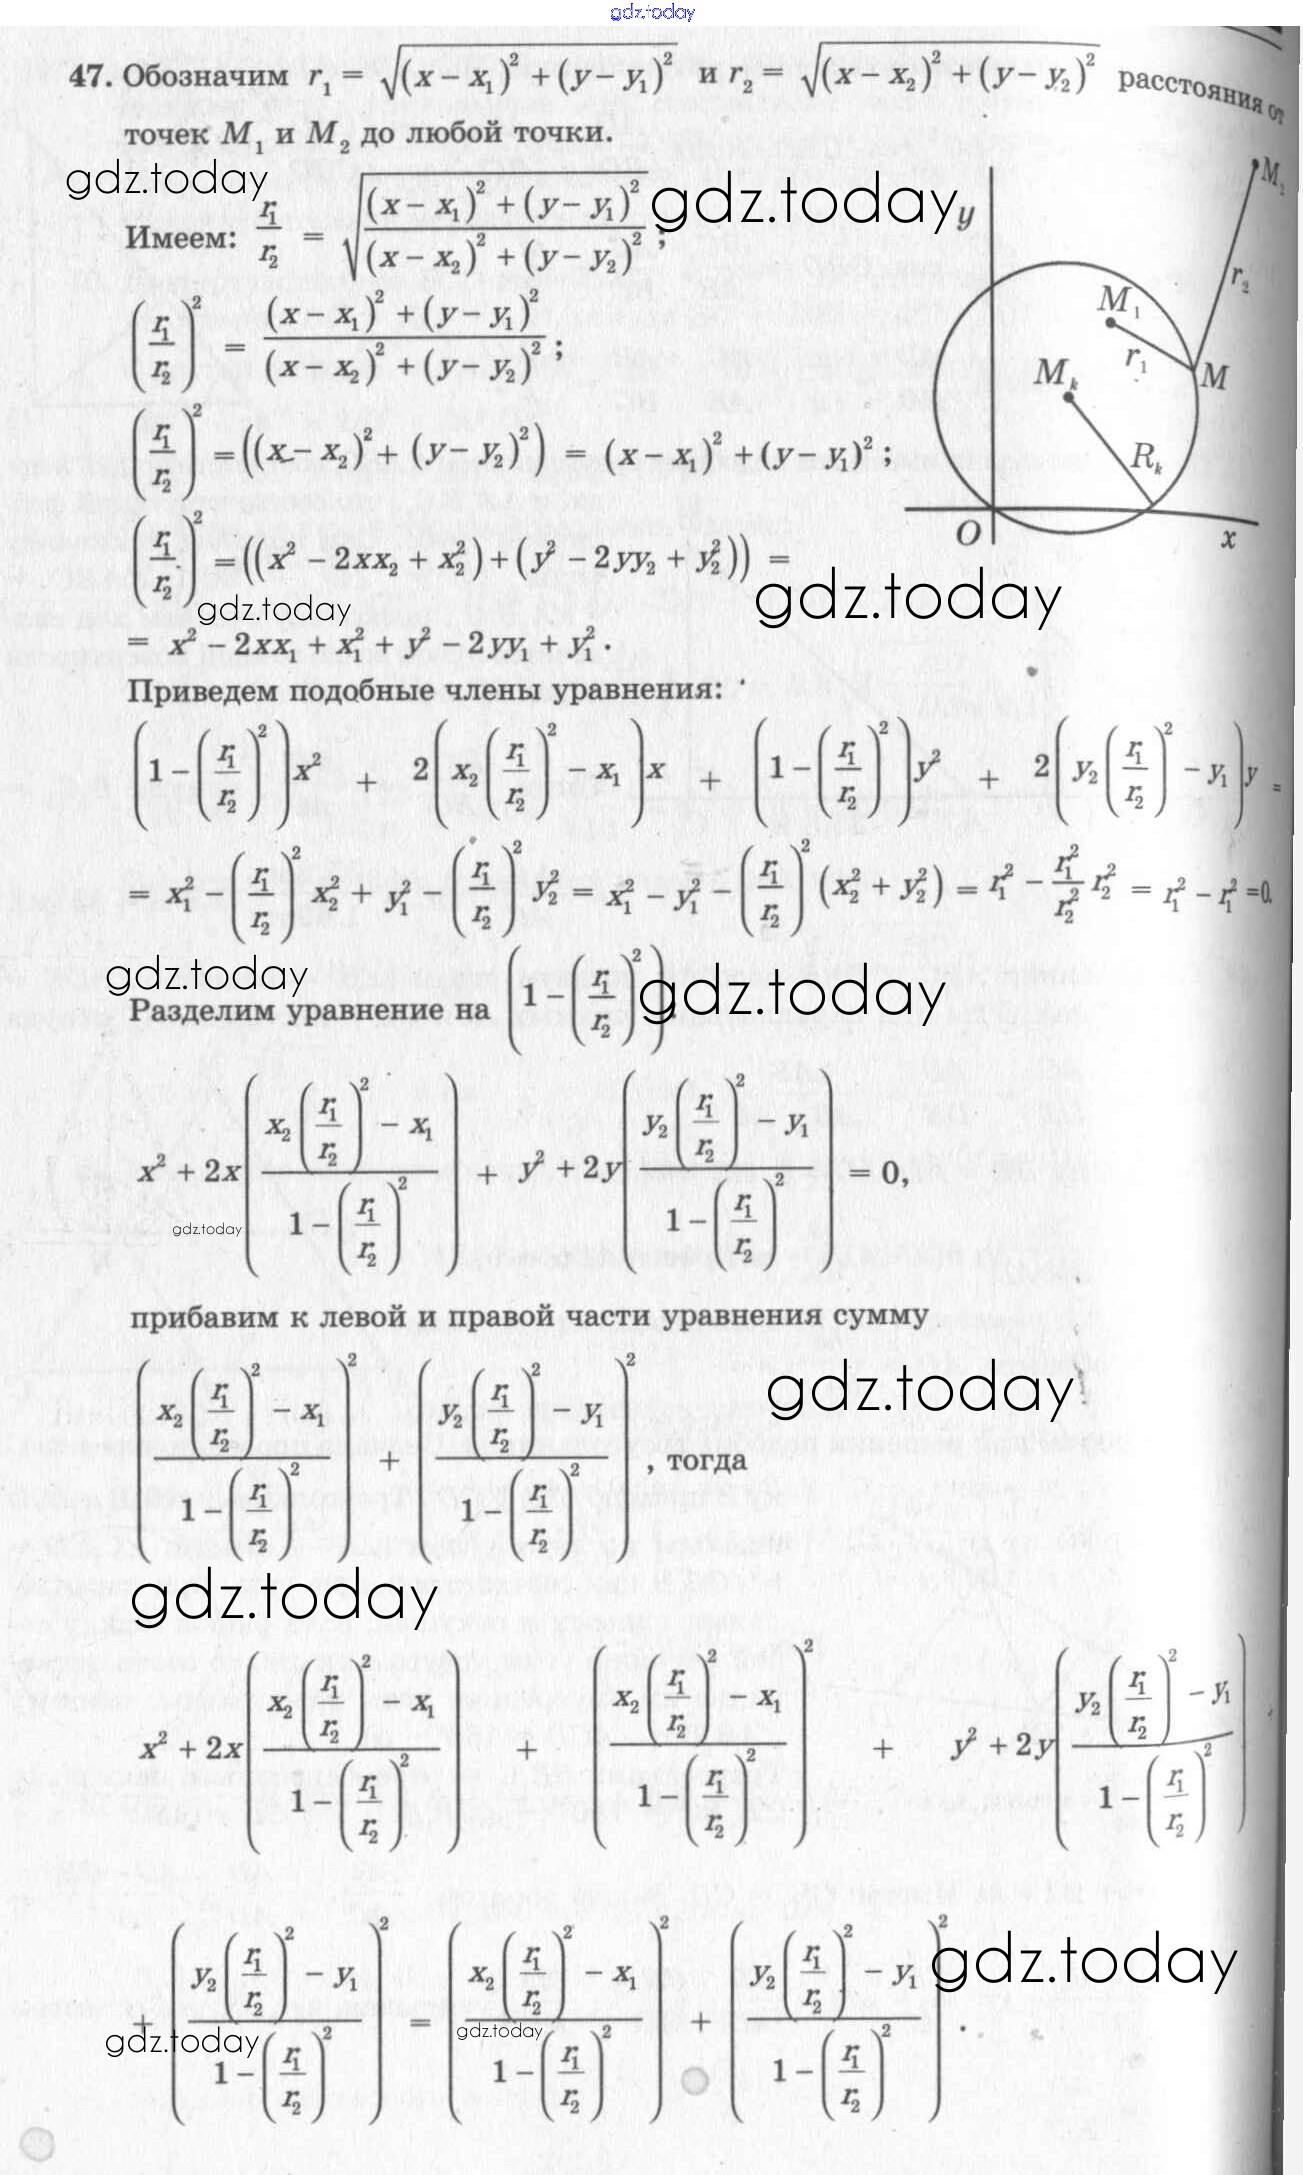 gdz.today
47. Обозначим r₁ = √((x – x₁)² + (y – y₁)²) и r₂ = √((x – x₂)² + (y – y₂)²) расстояния от
точек M₁ и M₂ до любой точки.
gdz.today
Имеем: r₁/r₂ = √(((x – x₁)² + (y – y₁)²)/((x – x₂)² + (y – y₂)²)) ;
gdz.today
y
M₂
r₂
M₁
r₁
M
Mₖ
Rₖ
O
x
(r₁/r₂)² = ((x – x₁)² + (y – y₁)²)/((x – x₂)² + (y – y₂)²) ;
(r₁/r₂)² = ((x – x₂)² + (y – y₂)²) = (x – x₁)² + (y – y₁)² ;
(r₁/r₂)² = ((x² – 2xx₂ + x₂²) + (y² – 2yy₂ + y₂²)) =
gdz.today
gdz.today
= x² – 2xx₁ + x₁² + y² – 2yy₁ + y₁² .
Приведем подобные члены уравнения:
(1 – (r₁/r₂)²)x² + 2(x₂(r₁/r₂)² – x₁)x + (1 – (r₁/r₂)²)y² + 2(y₂(r₁/r₂)² – y₁)y =
= x₁² – (r₁/r₂)² x₂² + y₁² – (r₁/r₂)² y₂² = x₁² – y₁² – (r₁/r₂)² (x₂² + y₂²) = r₁² – r₁²/r₂² r₂² = r₁² – r₁² = 0.
gdz.today
Разделим уравнение на (1 – (r₁/r₂)²).
gdz.today
x² + 2x((x₂(r₁/r₂)² – x₁)/(1 – (r₁/r₂)²)) + y² + 2y((y₂(r₁/r₂)² – y₁)/(1 – (r₁/r₂)²)) = 0,
gdz.today
прибавим к левой и правой части уравнения сумму
((x₂(r₁/r₂)² – x₁)/(1 – (r₁/r₂)²))² + ((y₂(r₁/r₂)² – y₁)/(1 – (r₁/r₂)²))² , тогда
gdz.today
gdz.today
x² + 2x((x₂(r₁/r₂)² – x₁)/(1 – (r₁/r₂)²)) + ((x₂(r₁/r₂)² – x₁)/(1 – (r₁/r₂)²))² + y² + 2y((y₂(r₁/r₂)² – y₁)/(1 – (r₁/r₂)²))
+ ((y₂(r₁/r₂)² – y₁)/(1 – (r₁/r₂)²))² = ((x₂(r₁/r₂)² – x₁)/(1 – (r₁/r₂)²))² + ((y₂(r₁/r₂)² – y₁)/(1 – (r₁/r₂)²))² .
gdz.today
gdz.today
gdz.today